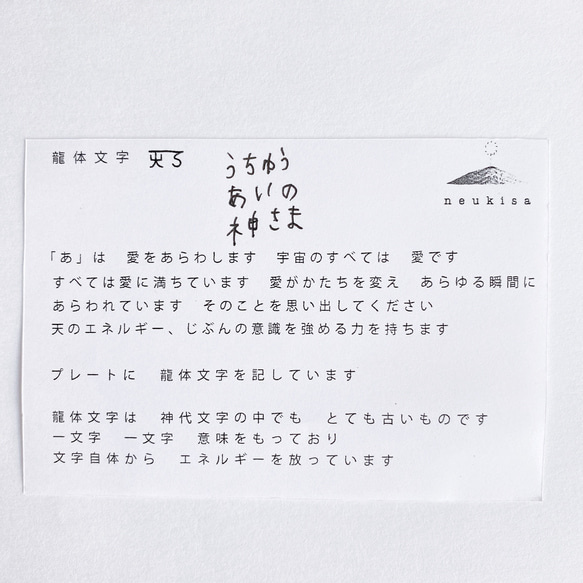 龍体文字
うちゅう
あいの
神さま
neukisa
「あ」は　愛をあらわします　宇宙のすべては　愛です
すべては愛に満ちています　愛がかたちを変え　あらゆる瞬間に
あらわれています　そのことを思い出してください
天のエネルギー、じぶんの意識を強める力を持ちます
プレートに　龍体文字を記しています
龍体文字は　神代文字の中でも　とても古いものです
一文字　一文字　意味をもっており
文字自体から　エネルギーを放っています